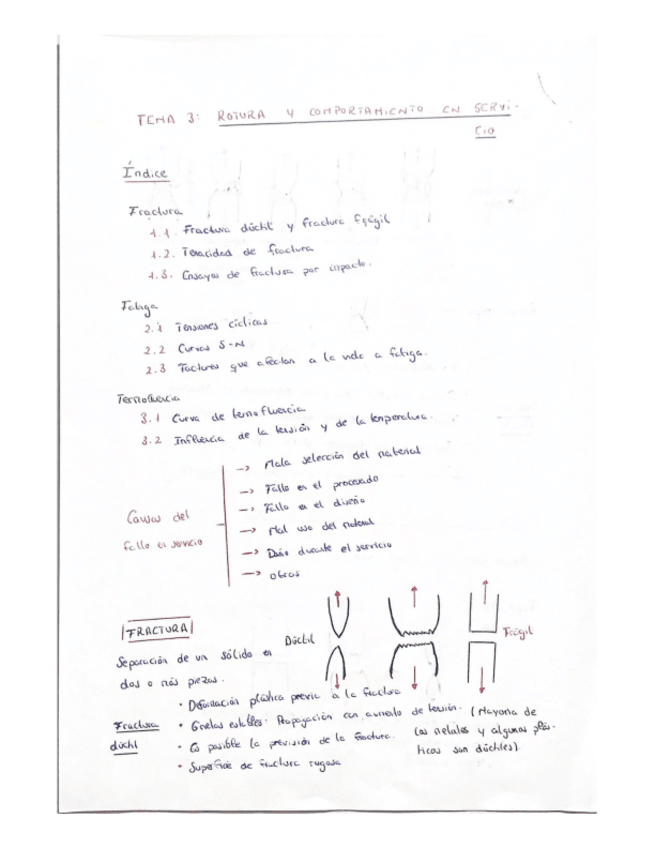 TEMA 3: ROTURA Y COMPORTAMIENTO EN SERVI-
CIO
Índice
Fractura
1.1. Fractura dúctil y fractura frágil
1.2. Tenacidad de fractura
1.3. Ensayos de fractura por impacto.
Fatiga
2.1 Tensiones cíclicas
2.2 Curvas S-N
2.3 Factores que afectan a la vida a fatiga.
Termofluencia
3.1 Curva de termofluencia
3.2 Influencia de la tensión y de la temperatura.
Causas del
fallo en servicio
→ Mala selección del material
→ Fallo en el procesado
→ Fallo en el diseño
→ Mal uso del material
→ Daño durante el servicio
→ Otros
FRACTURA
Dúctil
Frágil
Separación de un sólido en
dos o más piezas.
Fractura
dúctil
• Deformación plástica previa a la fractura
• Grietas estables: Propagación con aumento de tensión. (Mayoría de
los metales y algunos plás-
ticos son dúctiles).
• Es posible la previsión de la fractura.
• Superficie de fractura rugosa